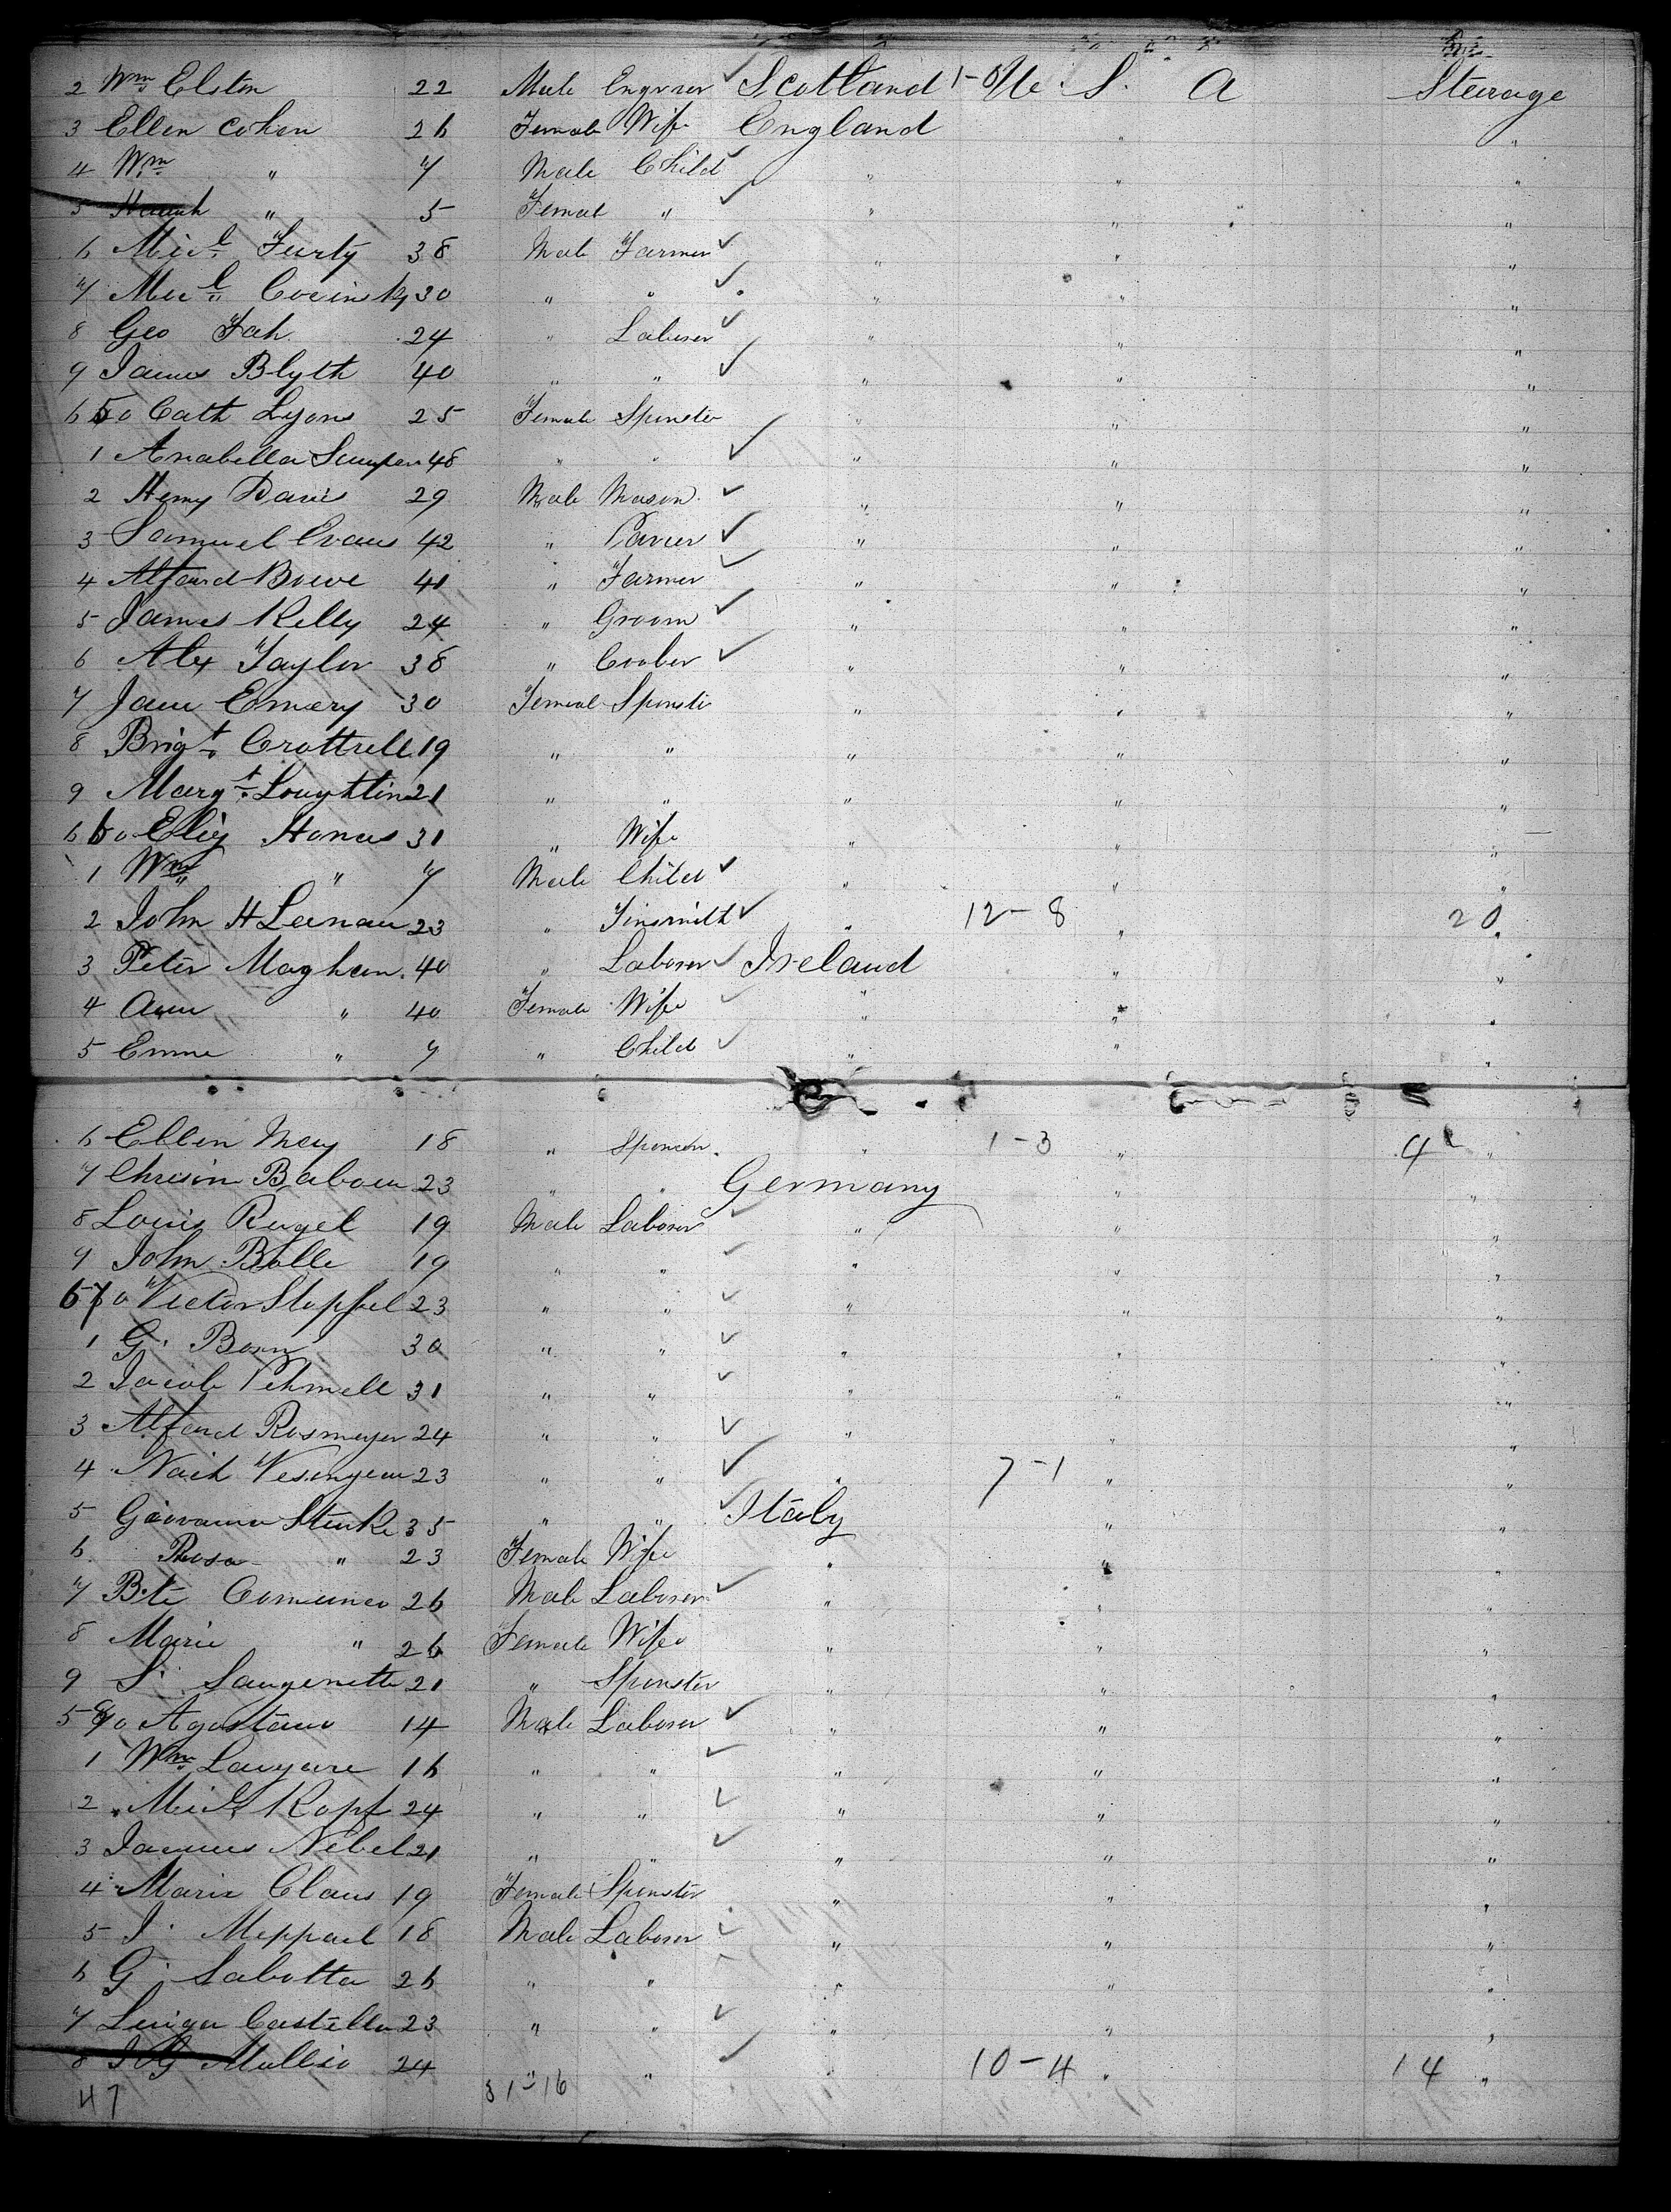 2 Wm Elston 22 Male Engraver ✓ Scotland 1-0 U. S. A Steerage
3 Ellen Cohen 26 Female Wife England " "
4 Wm " 7 Male Child ✓ " " "
5 Hannah " 5 Femal " ✓ " " "
6 Micl Furty 38 Male Farmer ✓ " " "
7 Micl 30 " " ✓ " " "
8 Geo Fah 24 " Laborer ✓ " " "
9 James Blyth 40 " " ✓ " " "
6 50 Cath Lyons 25 Female Spinster " " "
1 Anabella 48 " " ✓ " "
2 Henry Davis 29 Male Mason ✓ " " "
3 Samuel Evans 42 " Pavier ✓ " " "
4 Alfard Bowe 41 " Farmer ✓ " " "
5 James Kelly 24 " Groom ✓ " " "
6 Alex Taylor 38 " Coober ✓ " " "
7 Jane Emery 30 Female Spinster " " "
8 Brigt Crottrell 19 " " " " "
9 Margt Loughtlin 21 " " " " "
6 60 Eliz Hones 31 " Wife " " "
1 Wm " 7 Male Child ✓ " " "
2 John H Leenau 23 " Tinsmith ✓ " 12-8 " 20 "
3 Peter Maghan 40 " Laborer ✓ Ireland " "
4 Ann " 40 Female Wife ✓ " " "
5 Emme " 7 " Child ✓ " " "
6 Ellen May 18 " " 1-3 " 4 "
7 23 " " Germany " "
8 Louis Rugel 19 Male Laborer ✓ " " "
9 John Bolle 19 " " ✓ " " "
6 70 Victor Stopfel 23 " " ✓ " " "
1 G. Born 30 " " ✓ " " "
2 Jacob Pehmell 31 " " ✓ " " "
3 Alfard Rosmeyer 24 " " ✓ " " "
4 23 " " ✓ " 7-1 " "
5 Giovanna Stenke 35 " " ✓ Italy " "
6 Rosa " 23 Female Wife " " "
7 Bte Comunco 26 Male Laborer ✓ " " "
8 Marie " 26 Female Wife " " "
9 S. 21 " Spinster " " "
5 80 Agostano 14 Male Laborer ✓ " " "
1 Wm 16 " " ✓ " " "
2 Micl Kopf 24 " " ✓ " " "
3 Nebel 21 " " ✓ " " "
4 Marie Claus 19 Female Spinster " " "
5 J. Meppael 18 Male Laborer ✓ " " "
6 G. Sabotta 26 " " ✓ " " "
7 Castella 23 " " ✓ " " "
8 Mullio 24 " " ✓ " 10-4 " 14 "
47 31-16